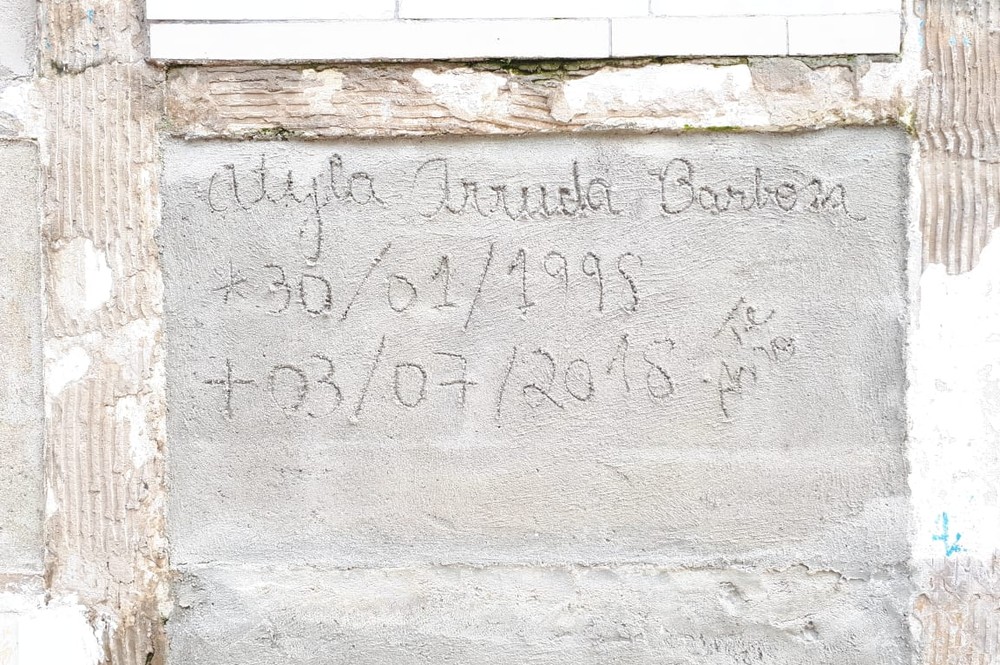 Atyla Arruda Barbosa
*30/01/1998
+03/07/2018
Te
Amo